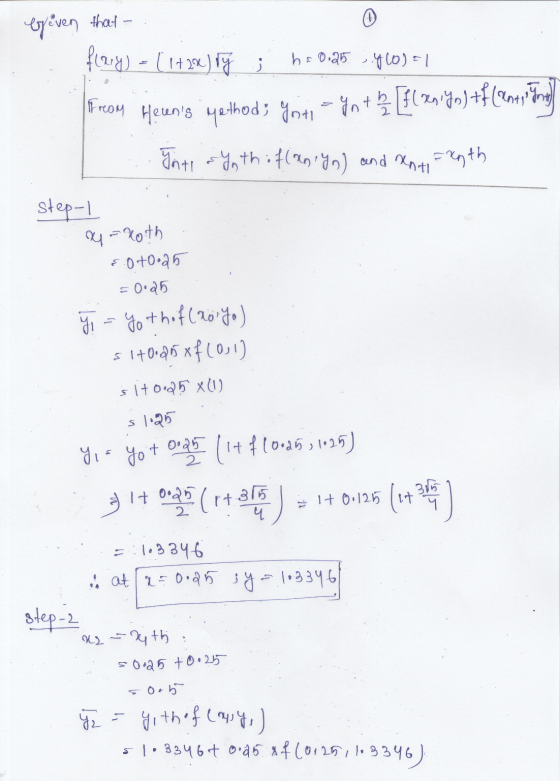 Given that -
①
f(x,y) = (1+2x)√y ; h=0.25, y(0)=1
From Heun's Method; yn+1 = yn + h/2 [f(xn,yn)+f(xn+1, ȳn+1)]
ȳn+1 = yn+h.f(xn,yn) and xn+1 = xn+h
Step-1
x1 = x0+h
= 0+0.25
= 0.25
ȳ1 = y0+h.f(x0,y0)
= 1+0.25×f(0,1)
= 1+0.25×(1)
= 1.25
y1 = y0 + 0.25/2 (1+f(0.25,1.25)
⇒ 1+ 0.25/2 (1+ 3√5/4) = 1+0.125 (1+ 3√5/4)
= 1.3346
∴ at x=0.25 ; y=1.3346
Step-2
x2 = x1+h.
= 0.25+0.25
= 0.5
ȳ2 = y1+h.f(x1,y1)
= 1.3346+0.25×f(0.25,1.3346)